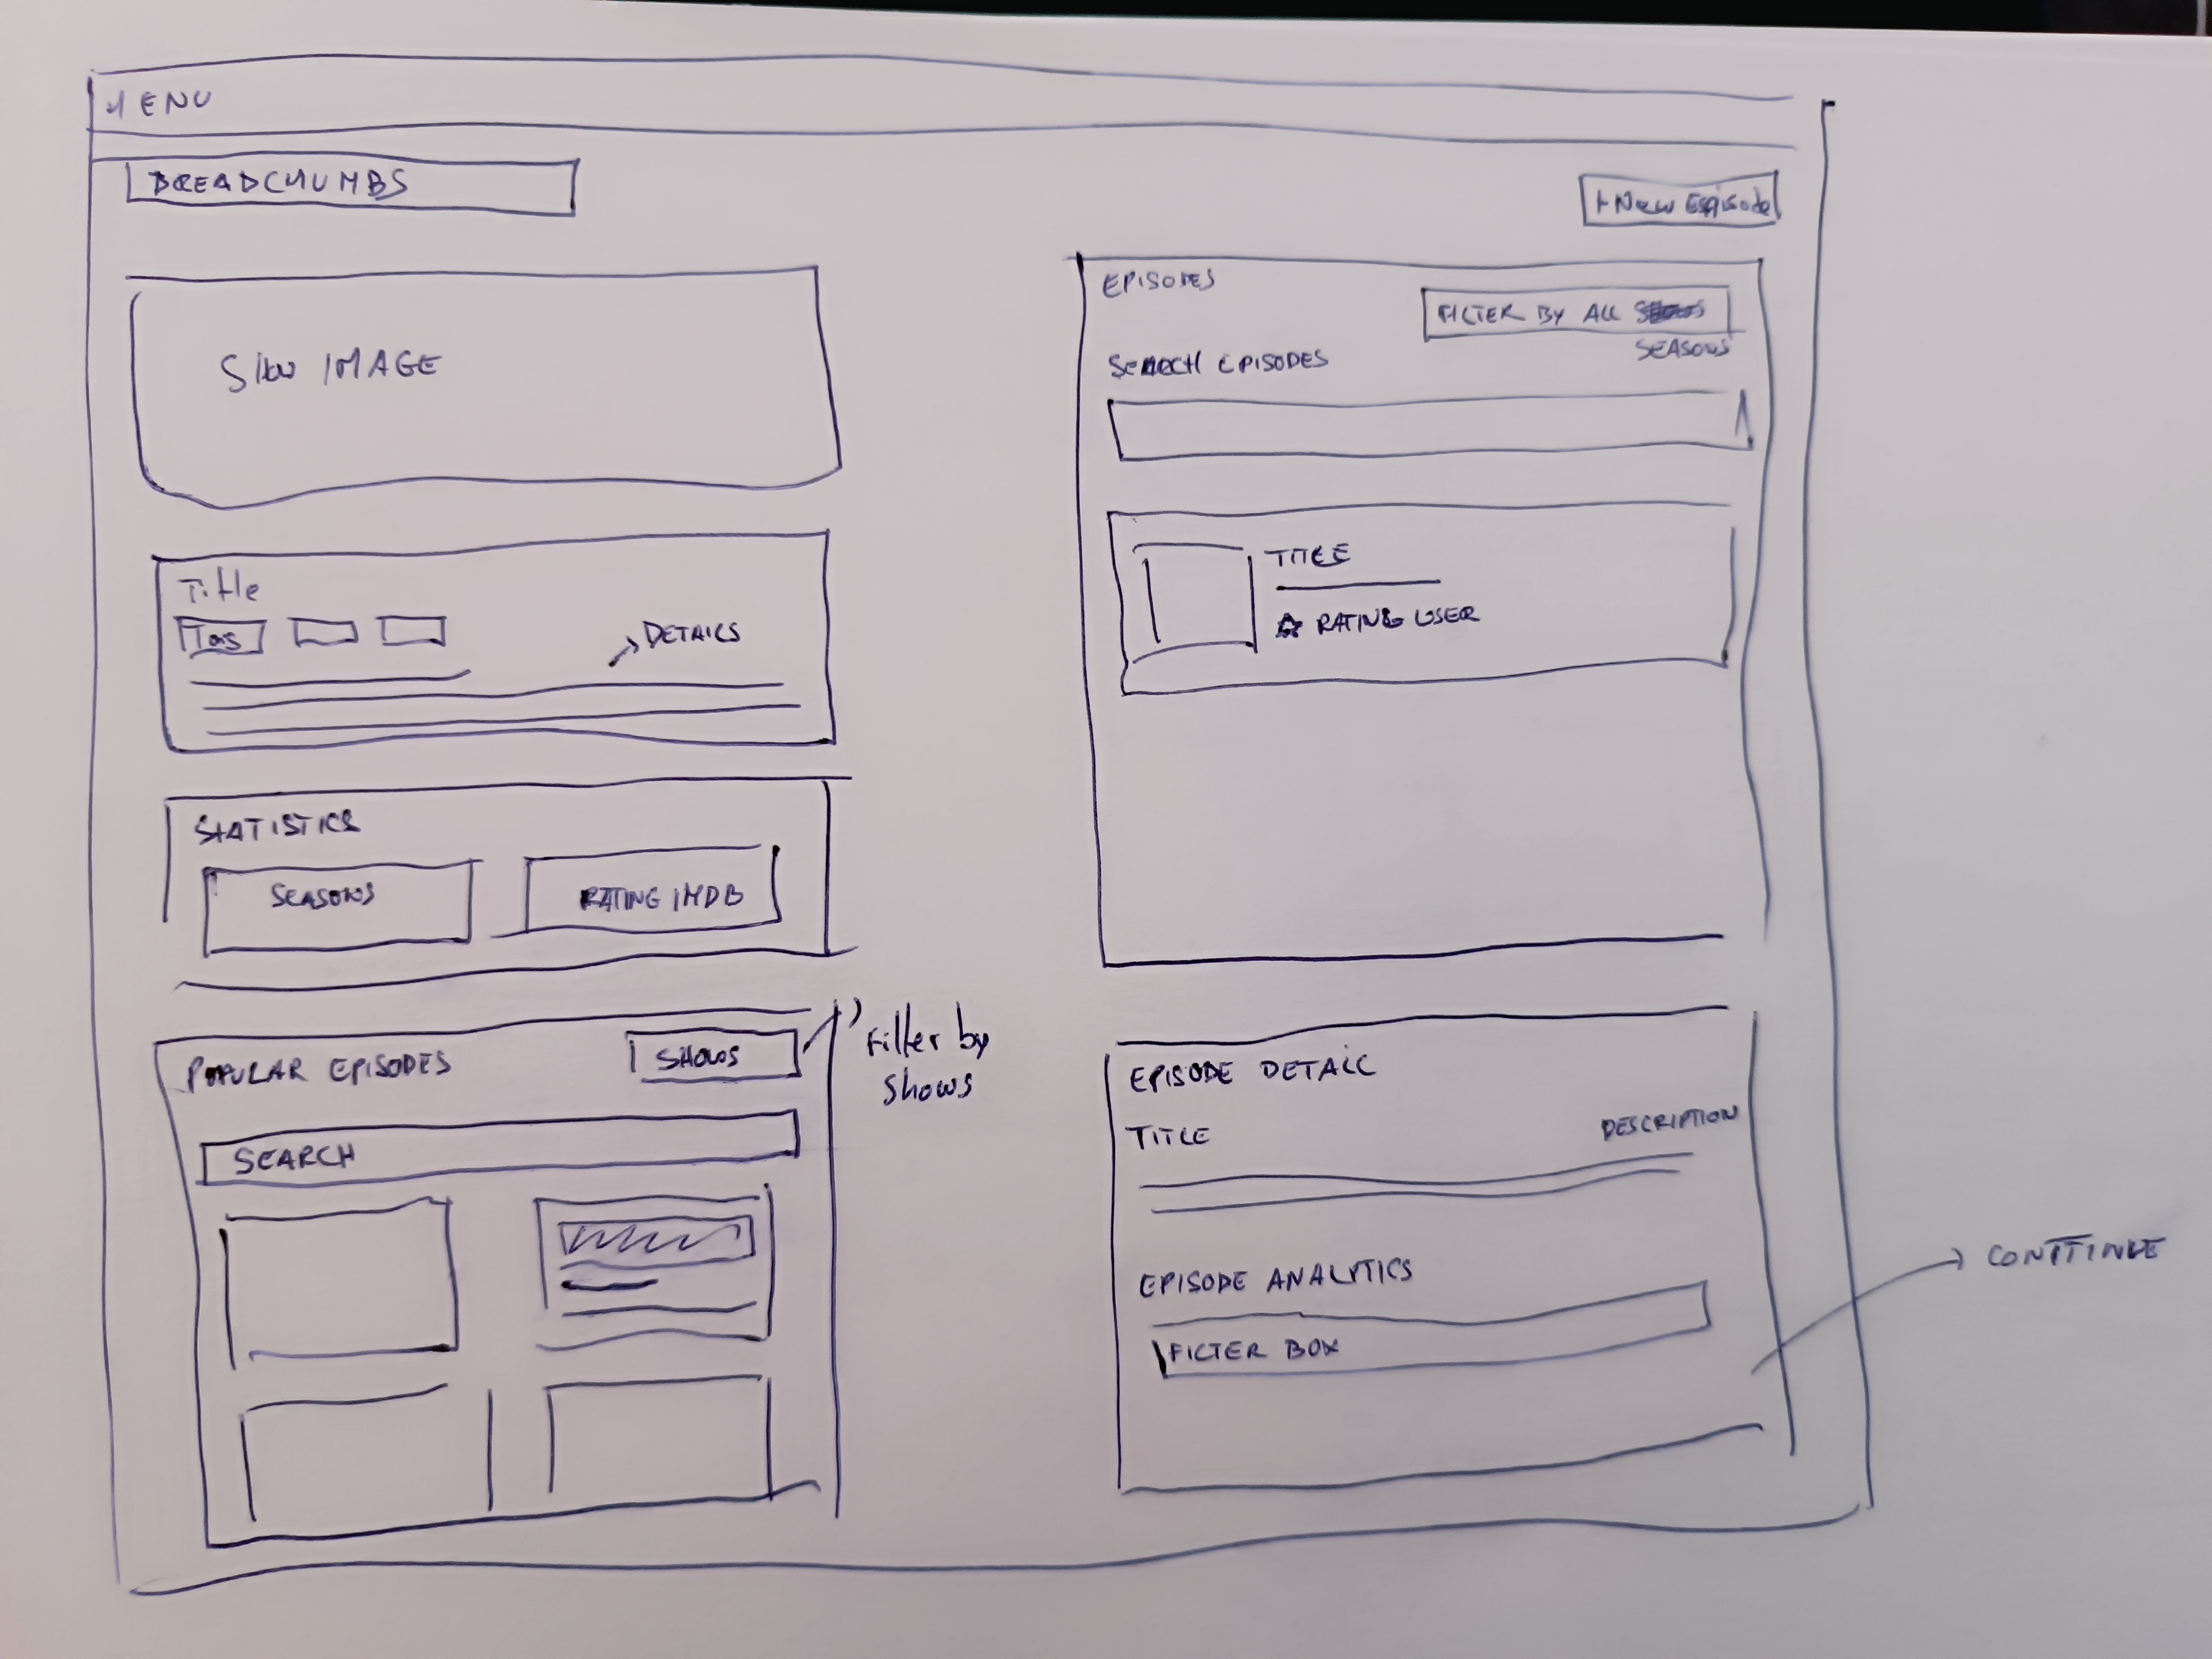 MENU
BREADCHUMBS
+ New Episode
Show IMAGE
Title
Tags
DETAILS
STATISTICS
SEASONS
RATING IMDB
POPULAR EPISODES
SHOWS
Filter by
shows
SEARCH
EPISODES
FILTER BY ALL
SEASONS
SEARCH EPISODES
TITLE
☆ RATING USER
EPISODE DETAIL
TITLE
DESCRIPTION
EPISODE ANALYTICS
FILTER BOX
CONTTINUE